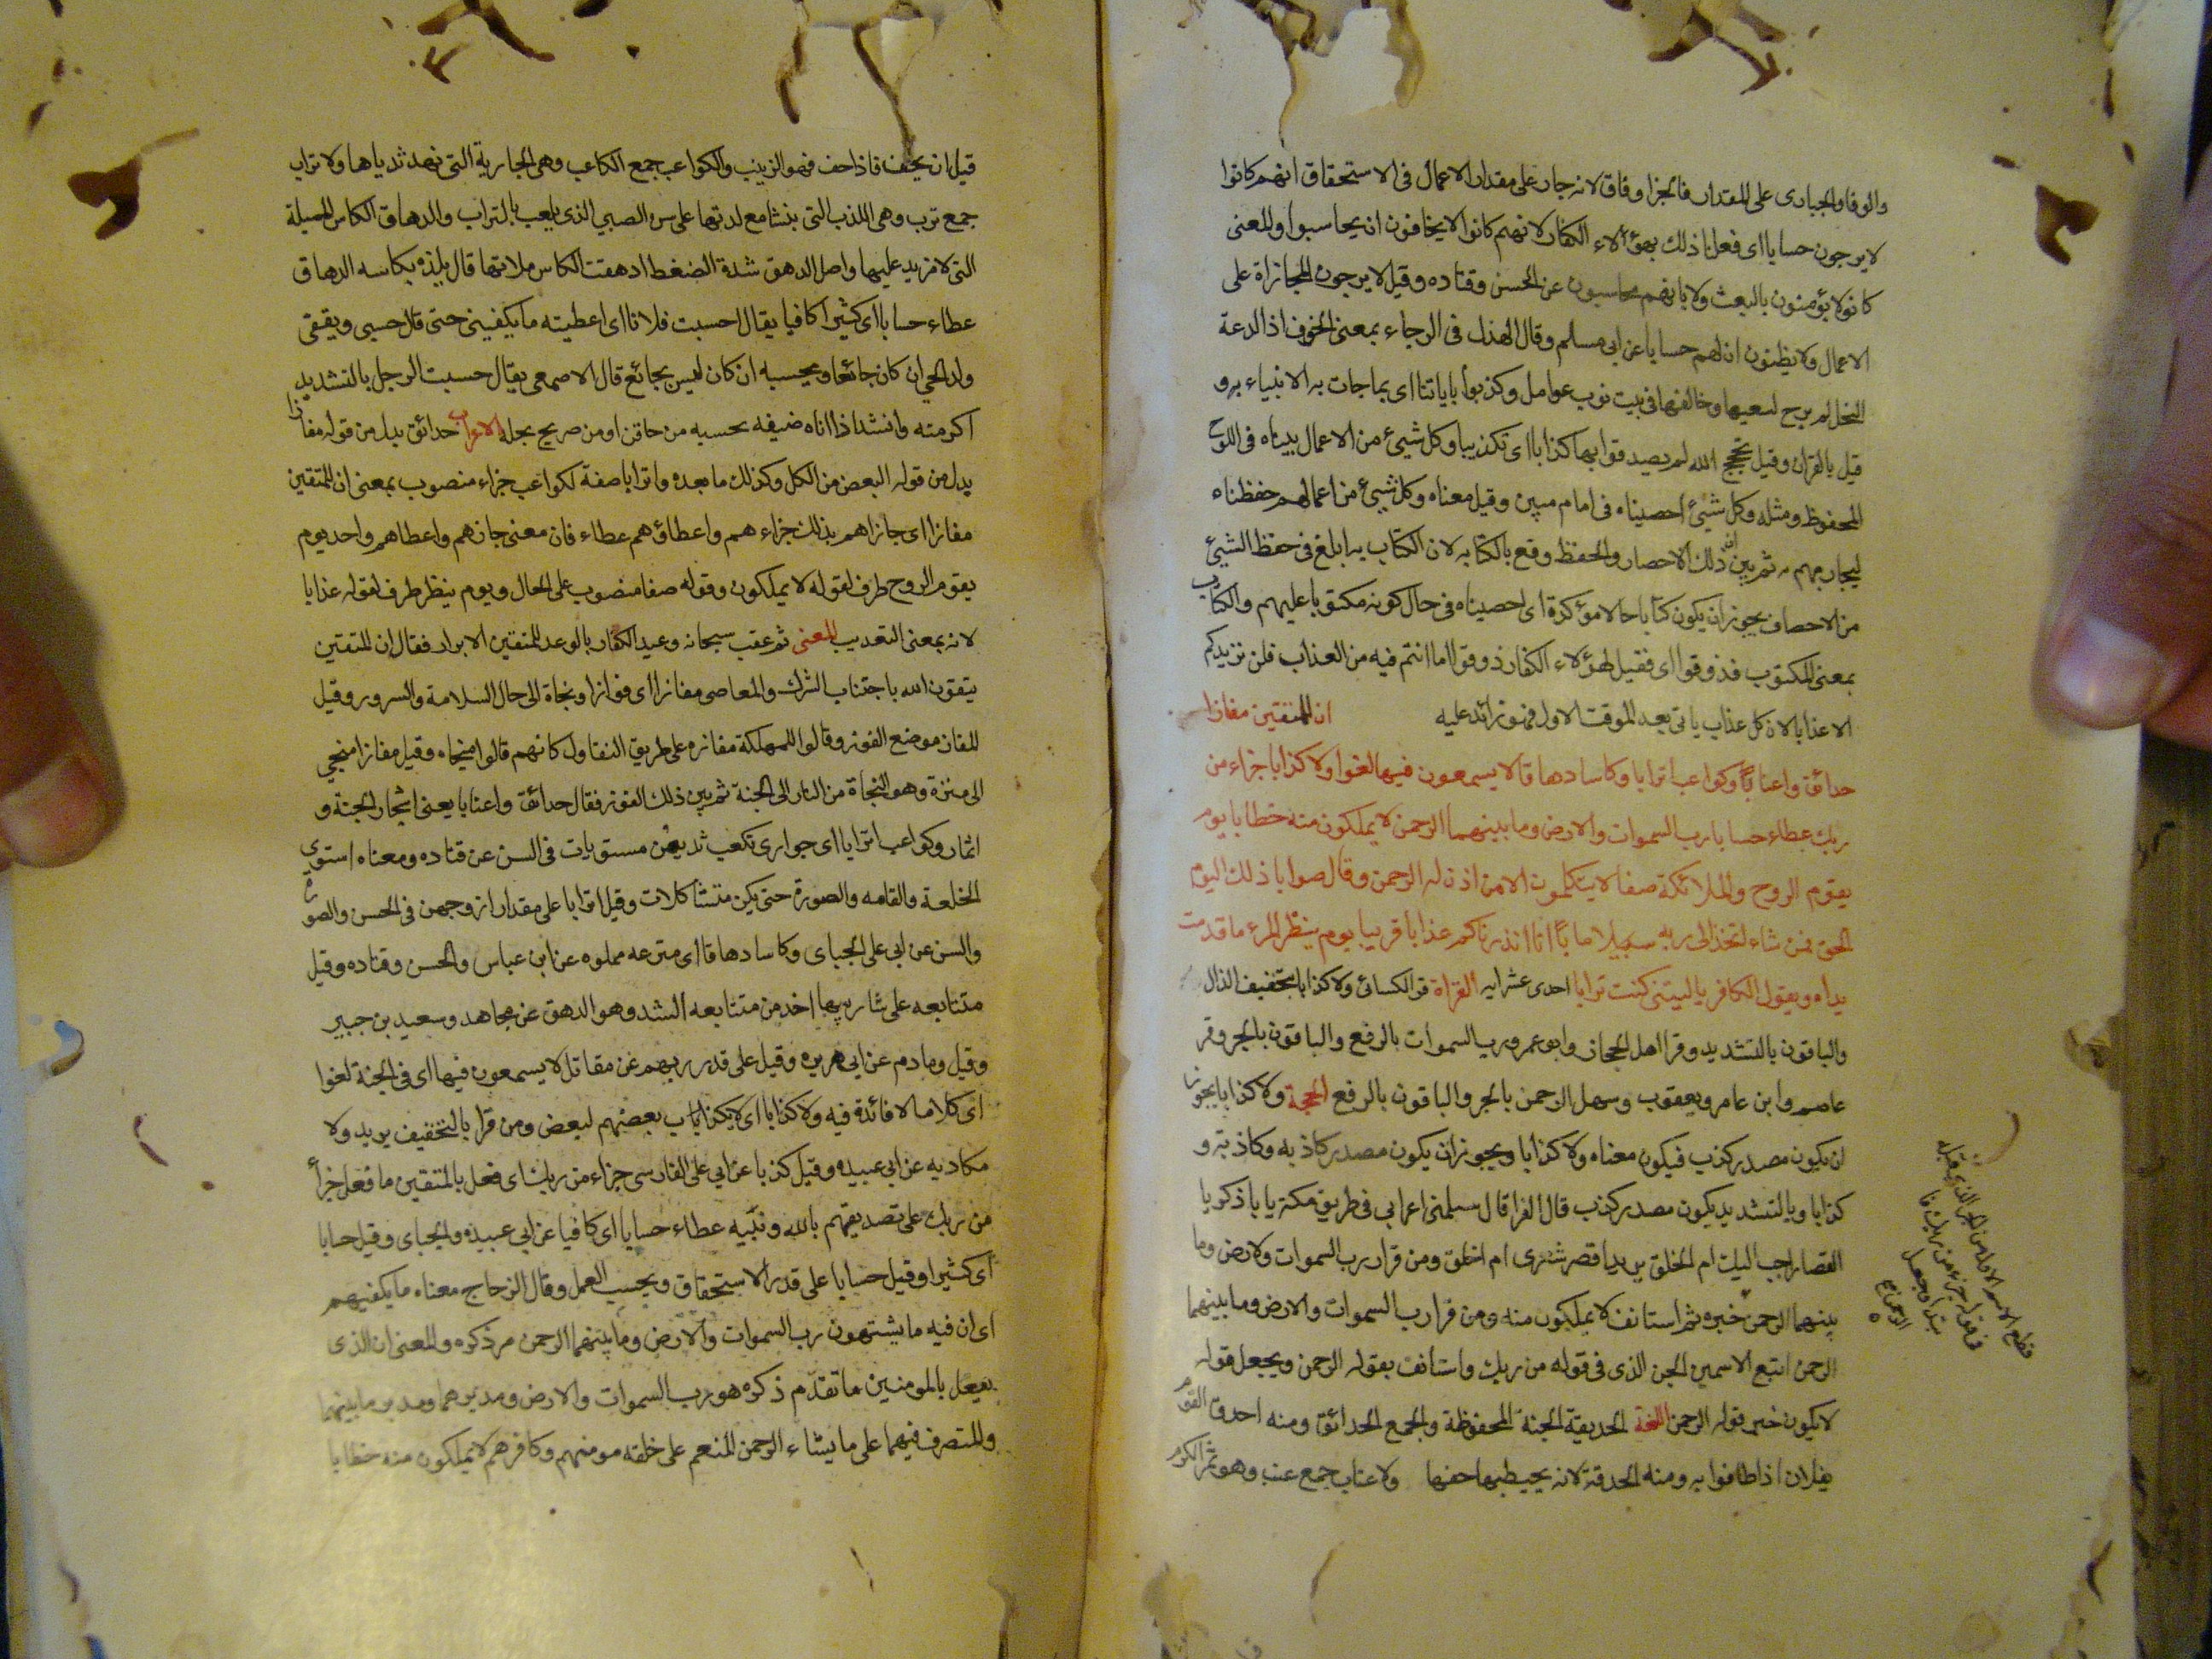 والوفاو الجباری علی المقدار فالجزا وفاق لانه جار علی مقدار الاعمال فی الاستحقاق انهم کانوا
لا یرجون حسابا ای فعلنا ذلك بهؤلاء الکفار لانهم کانوا لا یخافون ان یحاسبوا والمعنی
کانوا لا یؤمنون بالبعث ولا بانهم محاسبون عن الحسن وقتاده وقیل لا یرجون المجازاة علی
الاعمال ولا یظنون ان لهم حسابا عن ابی مسلم وقال الهذل فی الرجاء بمعنی الخوف اذا لدعة
النحل لم یرج لسعیها وخالفها فی بیت نوب عوامل وکذبوا بایاتنا ای بما جات به الانبیاء و
قیل بالقران وقیل بحجج الله لم یصدقوا بها کذابا ای تکذیبا وکل شیئ من الاعمال بیناه فی اللوح
المحفوظ ومثله وکل شیئ احصیناه فی امام مبین وقیل معناه وکل شیئ من اعمالهم حفظناه
لیجازیهم به ثم بین ان ذلك الاحصار والحفظ وقع بالکتابه لان الکتاب به ابلغ فی حفظ الشیئ
من الاحصاف یجوز ان یکون کتابا حالا مؤکدة ای احصیناه فی حال کونه مکتوبا علیهم والکتاب
بمعنی المکتوب فذوقوا ای فقیل لهؤلاء الکفار ذوقوا ما انتم فیه من العذاب فلن نزیدکم
الا عذابا لان کل عذاب یاتی بعد الموقت الاول فهو زائد علیه ان للمتقین مفازا
حدائق واعنابا وکواعب اترابا وکاسا دهاقا لا یسمعون فیها لغوا ولا کذابا جزاء من
ربك عطاء حسابا رب السموات والارض وما بینهما الرحمن لا یملکون منه خطابا یوم
یقوم الروح والملائکة صفا لا یتکلمون الا من اذن له الرحمن وقال صوابا ذلك الیوم
الحق فمن شاء اتخذ الی ربه سبیلا مابا انا انذرناکم عذابا قریبا یوم ینظر المرء ما قدمت
یداه ویقول الکافر یا لیتنی کنت ترابا احدی عشر ایه القراة قرا الکسائی ولا کذابا بتخفیف الذال
والباقون بالتشدید وقرا اهل الحجاز وابو عمرو رب السموات بالرفع والباقون بالجر وقر
عاصم وابن عامر ویعقوب وسهل الرحمن بالجر والباقون بالرفع الحجة ولا کذابا یجوز
ان یکون مصدر کذب فیکون معناه ولا کذابا ویجوز ان یکون مصدر کاذبه وکاذبته و
کذابا وبالتشدید یکون مصدر کذب قال الفرا قال سیلمنی اعرابی فی طریق مکة یا باذکریا
القصار احب الیك ام الخلق یرید اقصر شعری ام احلق ومن قرا رب السموات والارض وما
بینهما الرحمن خبره ثم استانف لا یملکون منه ومن قرا رب السموات والارض وما بینهما
الرحمن اتبع الاسمین الجن الذی فی قوله من ربك واستانف بقوله الرحمن ویجعل قوله
لا یکون خبر قوله الرحمن اللغة الحدیقة الجنة المحفوظة والجمع الحدائق ومنه احدق القوم
بفلان اذا طافوا به ومنه الحدقة لانه یحیط بها جفنها ولاعناب جمع عنب وهو ثمر الکرم
قطع الاسم الاول من الجر الذی قبله
فی قوله جزاء من ربك
مبتدا وجعل
الرحمن
قیل ان یجف فاذا جف فهو الزبیب والکواعب جمع الکاعب وهی الجاریة التی نهد ثدیاها ولا تراب
جمع ترب وهی اللذب التی بنشا مع لدتها علی سن الصبی الذی یلعب بالتراب والدهاق الکاس الممیلة
التی لا مزید علیها واصل الدهق شدة الضغط ادهقت الکاس ملاتها قال بلذه بکاسه الدهاق
عطاء حسابا ای کثیرا کافیا یقال احسبت فلانا ای اعطیته ما یکفینی حتی قال حسبی ویقفی
ولد الحی ان کان جائعا ویحسبه ان کان لیس بجائع قال الاصمعی یقال حسبت الرجل بالتشدید
اکرمته وانشد اذا اتاه ضیفه یحسبه من حاقن او من صریح بحلبه الاعراب حدائق بدل من قوله مفازا
بدل من قوله البعض من الکل وکذلك ما بعده واترابا صفة لکواعب جزاء منصوب بمعنی ان للمتقین
مفازا ای جازاهم بذلك جزاء هم واعطاؤهم عطاء فان معنی جازهم واعطاهم واحد یوم
یقوم الروح طرف لقوله لا یملکون وقوله صفا منصوب علی الحال ویوم ینظر طرف لقوله عذابا
لانه بمعنی التعذیب المعنی ثم عقب سبحانه وعید الکفار بالوعد للمتقین الابرار فقال ان للمتقین
یتقون الله باجتناب الشرك والمعاصی مفازا ای فوازا ونجاة الی حال السلامة والسرور وقیل
المفاز موضع الفوز وقالوا للمهلکة مفازه علی طریق التفاول کانهم قالوا منجاه وقیل مفازا منجی
الی منتزة وهو النجاة من النار الی الجنة ثم بین ذلك الفوز فقال حدائق واعنابا یعنی اشجار الجنة و
اثمار وکواعب اترابا ای جواری تکعب ثدیهن مستویات فی السن عن قتاده ومعناه استوی
الخلعة والقامه والصورة حتی یکن متشاکلات وقیل اترابا علی مقدار ازوجهن فی الحسن والصوره
والسن عن ابی علی الجبای وکاسا دهاقا ای مترعه مملوه عن ابن عباس والحسن وقتاده وقیل
متتابعه علی شاربیها اخد من متتابعه الشد وهو الدهق عن مجاهد وسعید بن جبیر
وقیل ومادم عن ابی هریره وقیل علی قدر ربیهم عن مقاتل لا یسمعون فیها ای فی الجنة لغوا
ای کلاما لا فائدة فیه ولا کذابا ای لا یکذاباب بعضهم لبعض ومن قرا بالتخفیف یرید ولا
مکادبه عن ابی عبیده وقیل کذبا عن ابی علی الفارسی جزاء من ربك ای فعل بالمتقین ما فعل جزا
من ربك علی تصدیقهم بالله ونبیه عطاء حسابا ای کافیا عن ابی عبیده والجبای وقیل حسابا
ای کثیرا وقیل حسابا علی قدر الاستحقاق وبحسب العمل وقال الزجاج معناه ما یکفیهم
ای ان فیه ما یشتهون رب السموات والارض وما بینهما الرحمن مر ذکره والمعنی ان الذی
یفعل بالمومنین ما تقدم ذکره هو رب السموات والارض ومدبرهما ومدبر ما بینهما
والمتصرف فیهما علی ما یشاء الرحمن المنعم علی خلقه مومنهم وکافرهم لا یملکون منه خطابا